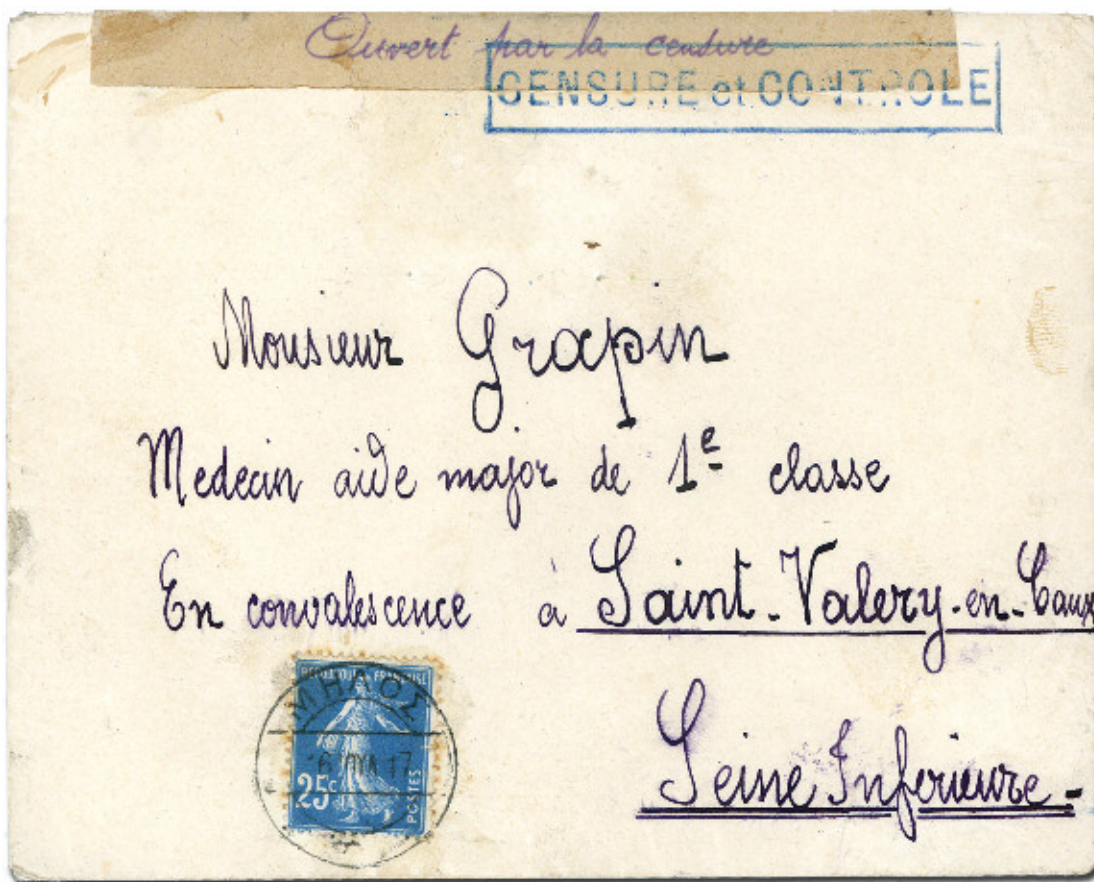 Ouvert par la censure
CENSURE et CONTROLE
Monsieur Grapin
Medecin aide major de 1e classe
En convalescence à Saint-Valery-en-Caux
Seine Inferieure-
REPUBLIQUE FRANÇAISE
ΜΗΛΟΣ
17
25c
POSTES